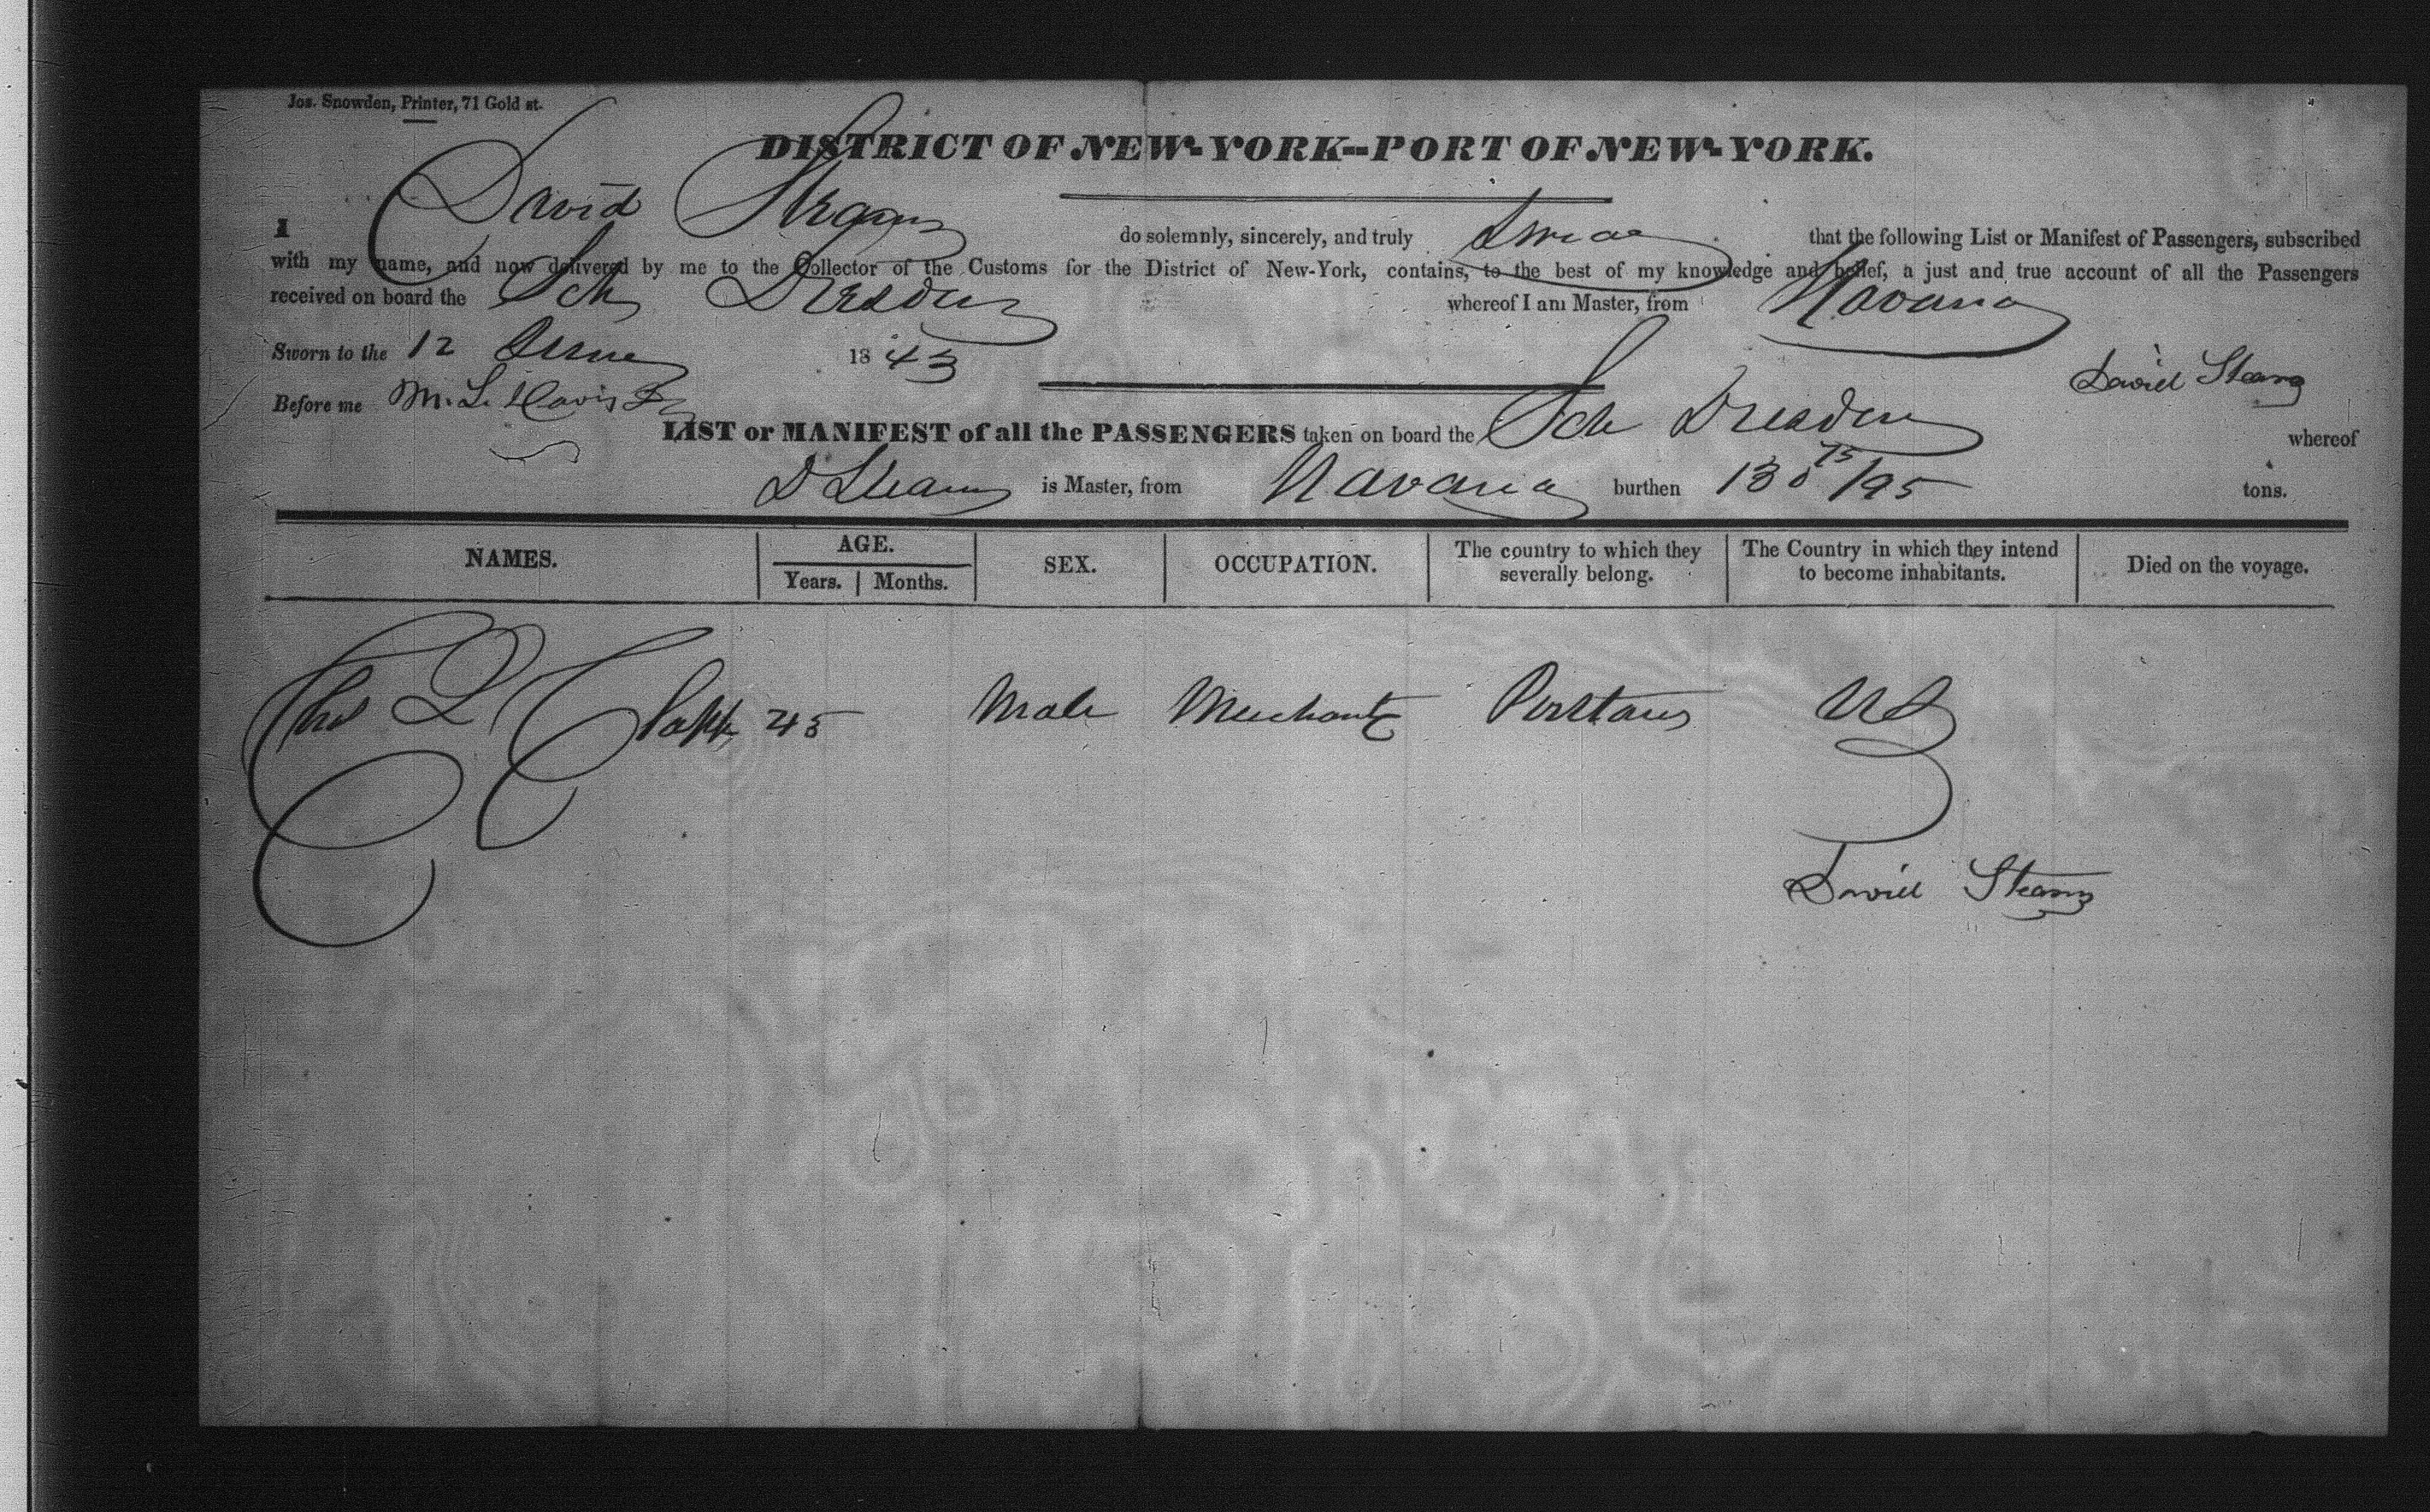 Jos. Snowden, Printer, 71 Gold st.
DISTRICT OF NEW-YORK--PORT OF NEW-YORK.
I David Stearns do solemnly, sincerely, and truly Swear that the following List or Manifest of Passengers, subscribed
with my name, and now delivered by me to the Collector of the Customs for the District of New-York, contains, to the best of my knowledge and belief, a just and true account of all the Passengers
received on board the Sch Dresden whereof I am Master, from Havana
Sworn to the 12 June 1843
David Stearns
Before me M. L. Davis
LIST or MANIFEST of all the PASSENGERS taken on board the Sch Dresden whereof
D Stearns is Master, from Havana burthen 130 75/95 tons.
NAMES. AGE. Years. Months. SEX. OCCUPATION. The country to which they severally belong. The Country in which they intend to become inhabitants. Died on the voyage.
Clapp 45 Male Merchant US
David Stearns